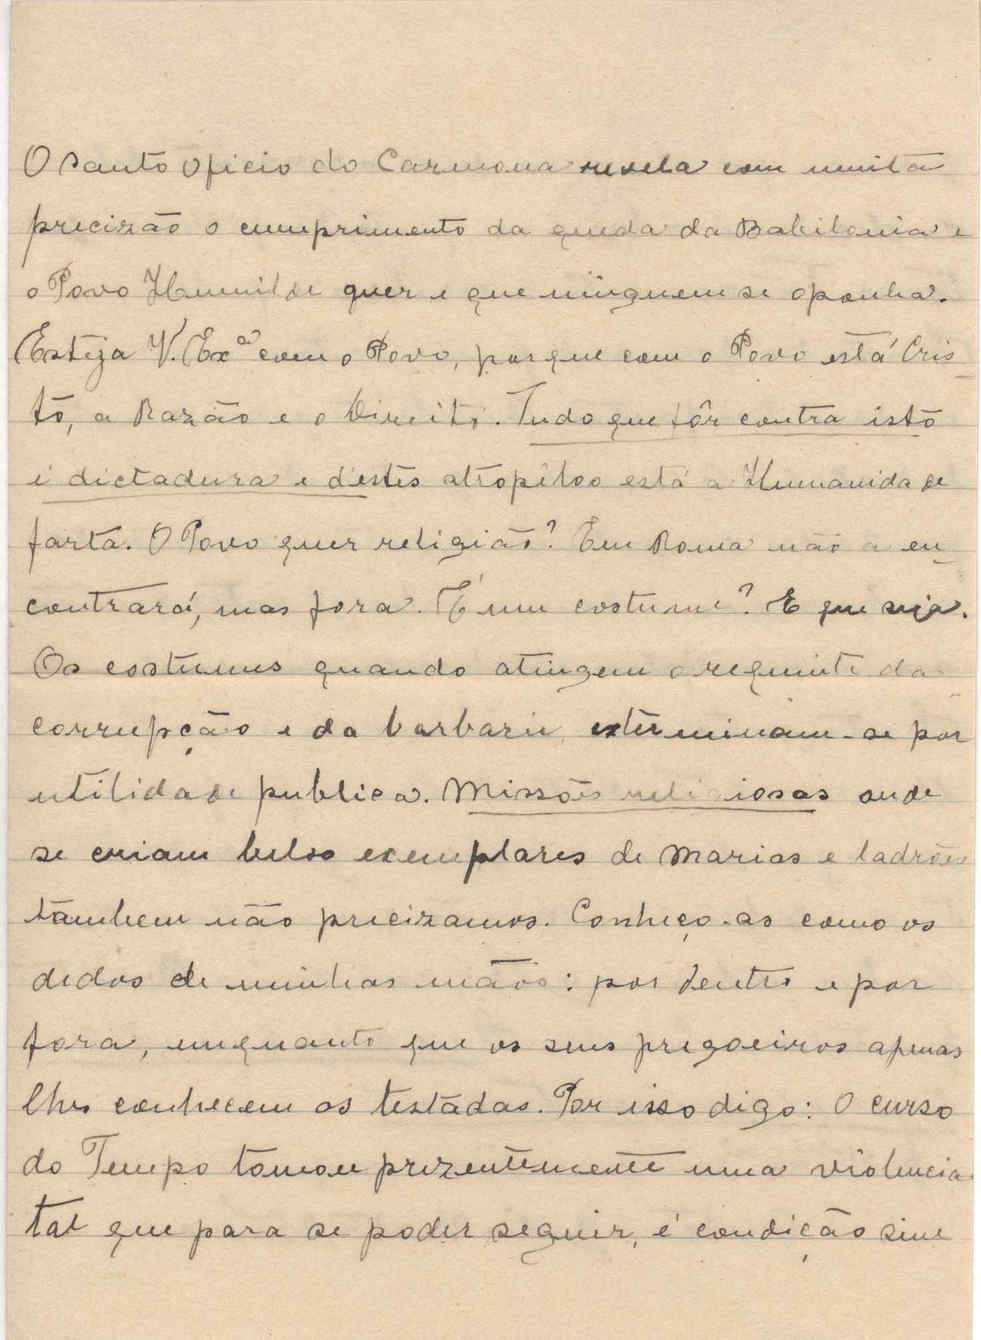 O Santo Oficio do Carmona revela com muita
precizão o cumprimento da queda da Babilonia e
o Povo Humilde quer e que ninguem se oponha.
Esteja V. Exª com o Povo, porque com o Povo está Cris-
to, a Razão e o Direito. Tudo que fôr contra isto
é dictadura e d'estes atropêlos está a Humanidade
farta. O Povo quer religião? Em Roma não a en-
contrará, mas fora. É um costume? E que seja.
Os costumes quando atingem o requinte da
corrupção e da barbarie exterminam-se por
utilidade publica. Missões religiosas onde
se criam belos exemplares de Marias e ladrões
tambem não precizamos. Conheço-as como os
dedos de minhas mãos: por dentro e por
fora, emquanto que os seus pregoeiros apenas
lhes conhecem as testadas. Por isso digo: O curso
do Tempo tomou prezentemente uma violencia
tal que para se poder seguir, é condição sine